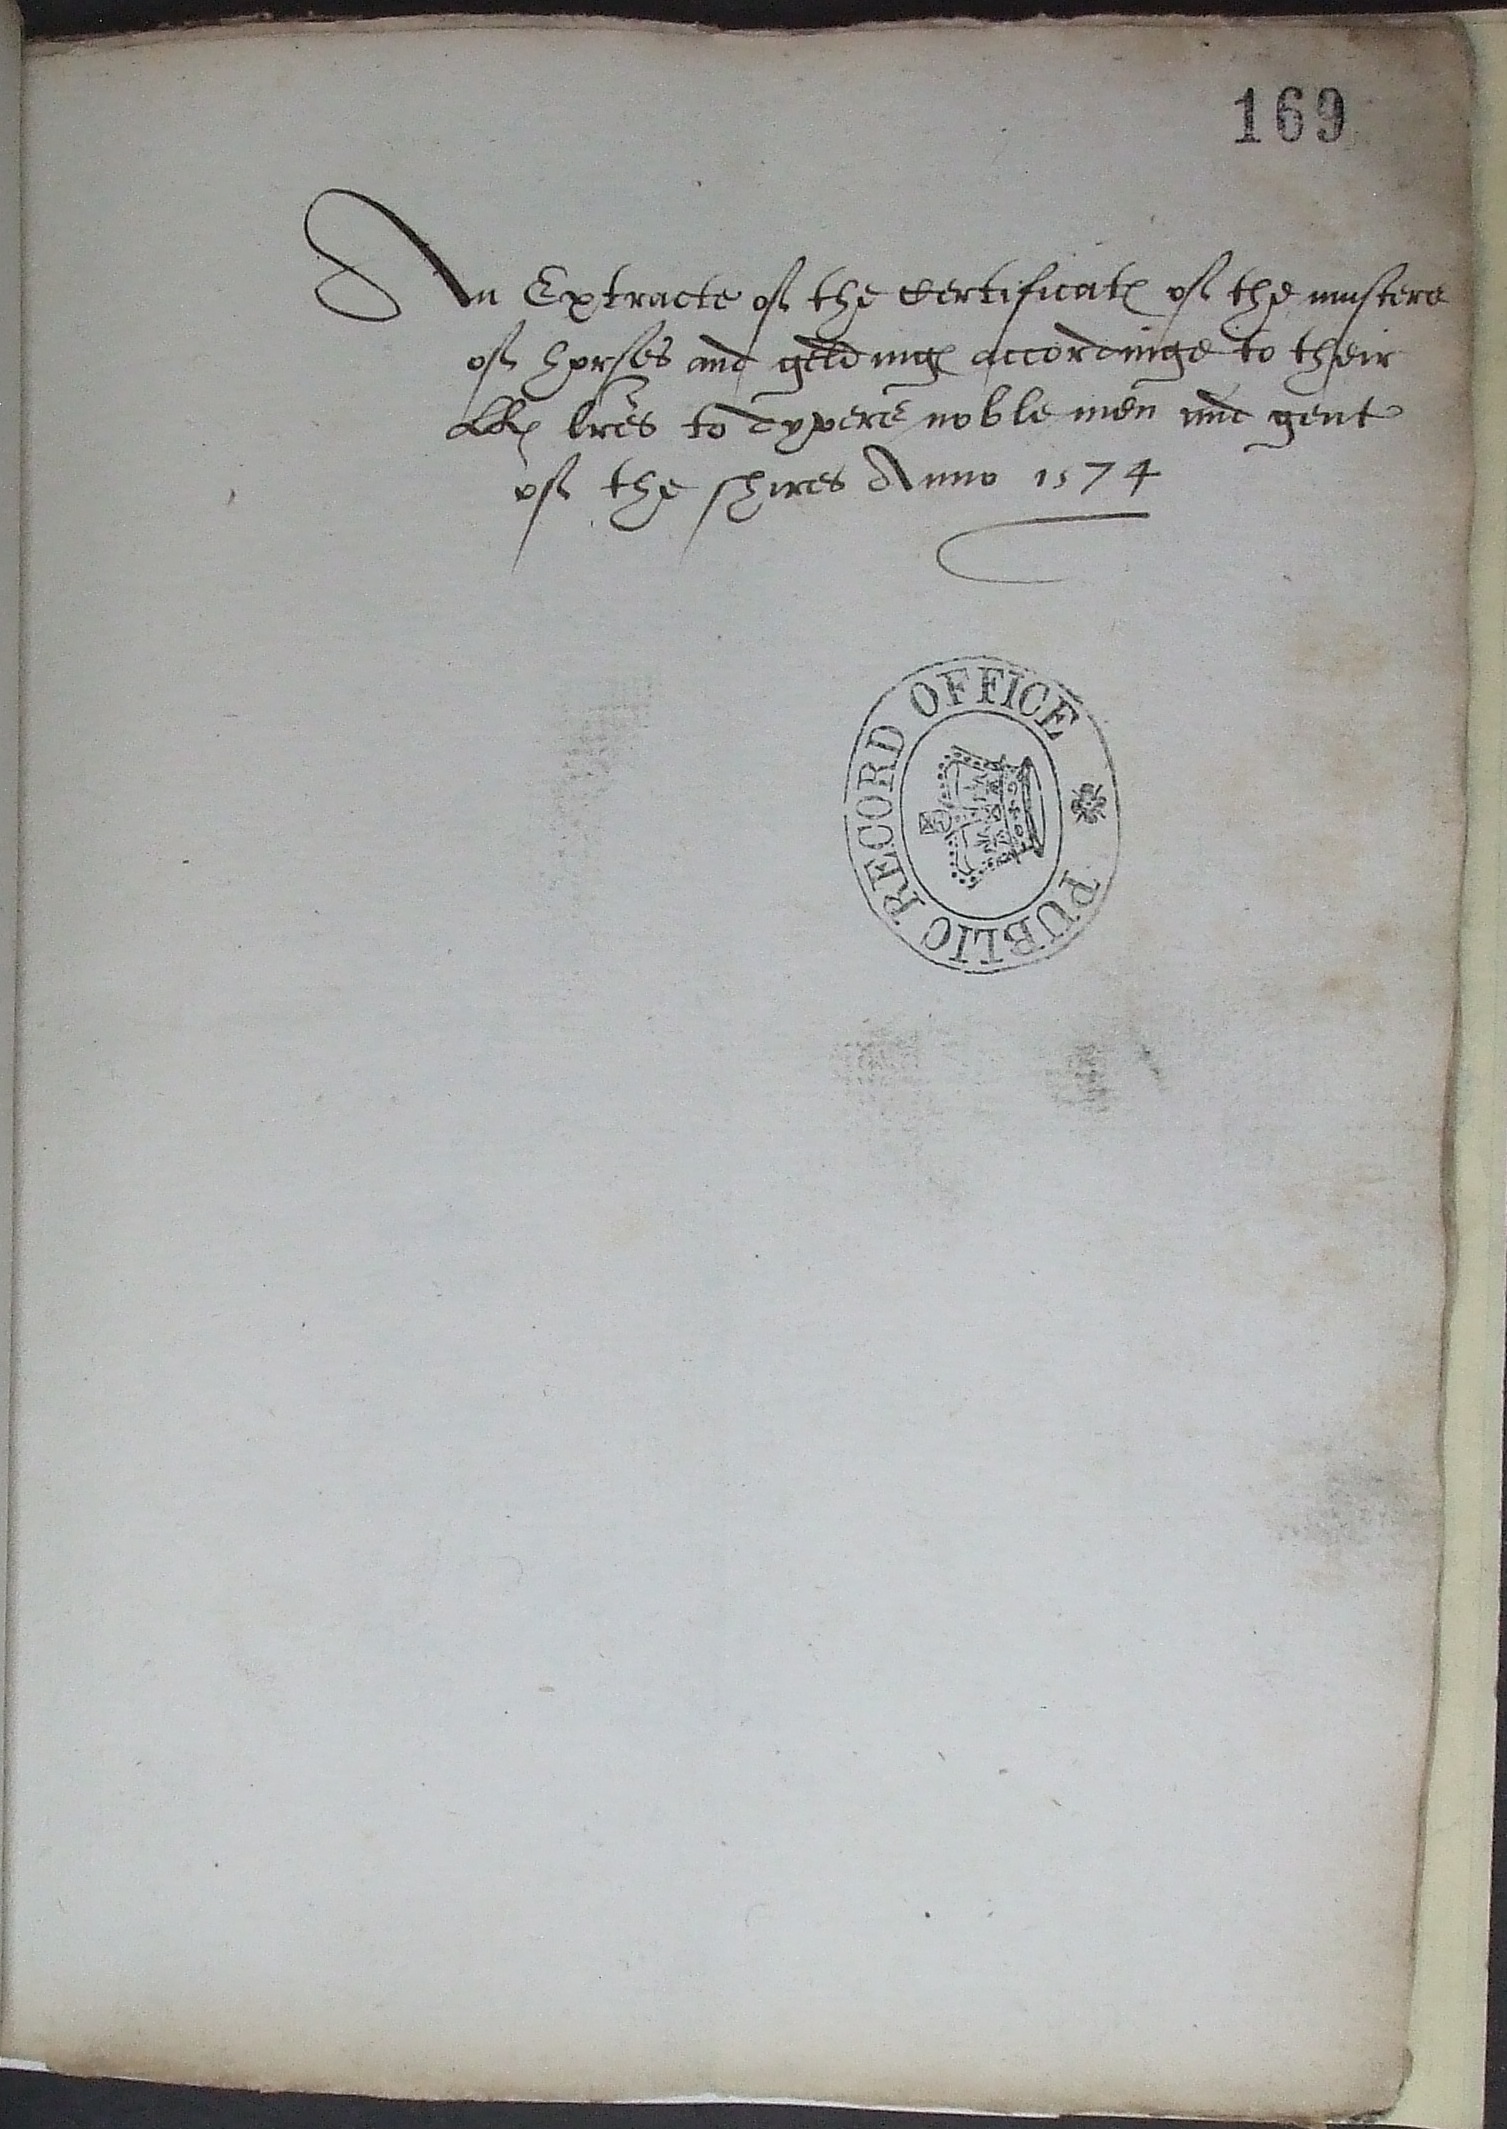 169
An Extracte of the Certificates of the musters
of horses and geldinges accordinge to their
LLs lres to dyvers noble men and gent
of the shires Anno 1574
PUBLIC RECORD OFFICE